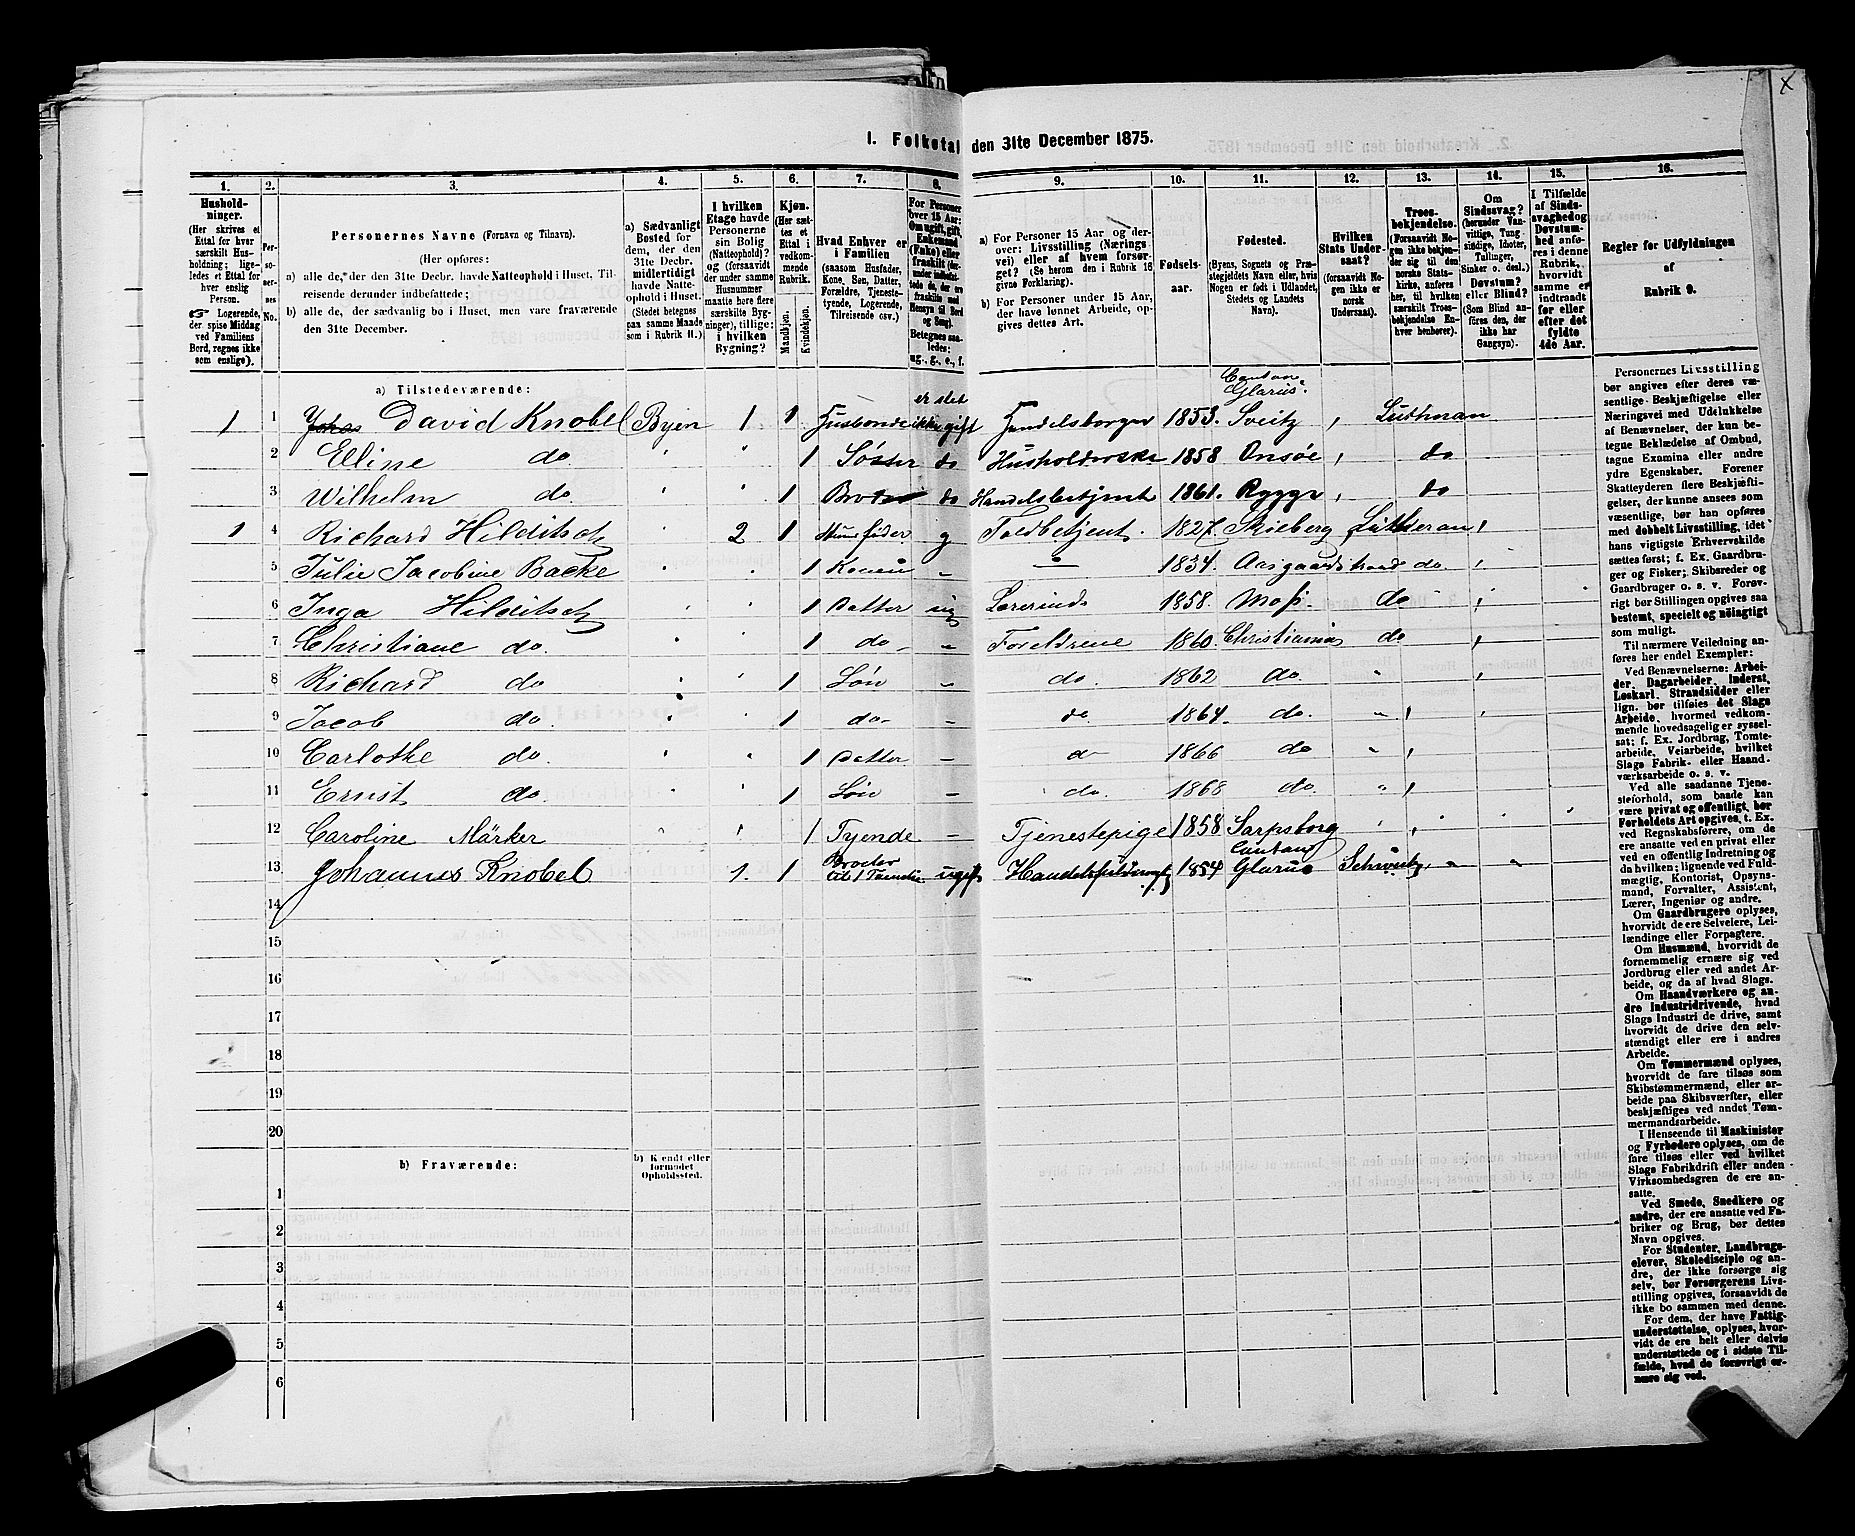 X
I. Folketal den 31te December 1875.
1. 2. 3. 4. 5. 6. 7. 8. 9. 10. 11. 12. 13. 14. 15. 16.
Husholdninger.
(Her skrives et
Ettal for hver
særskilt Husholdning;
ligeledes et Ettal for
hver enslig
Person.
Logerende,
der spise Middag
ved Familiens
Bord, regnes ikke
som enslige).
Personernes No.
Personernes Navne (Fornavn og Tilnavn).
(Her opføres:
a) alle de, der den 31te Decbr. havde Natteophold i Huset, Tilreisende
derunder indbefattede;
b) alle de, der sædvanlig bo i Huset, men vare fraværende
den 31te December.
a) Sædvanligt
Bosted for
dem, der den
31te Decbr.
midlertidigt
havde Natteophold
i Huset.
(Stedet betegnes
paa samme Maade
som i Rubrik 11.)
I hvilken
Etage havde
Personerne
sin Bolig
(Natteophold)?
og (forsaavidt
der under samme
Husnummer
maatte høre flere
særskilte Bygninger),
tillige:
i hvilken
Bygning?
Kjøn.
(Her sættes
et
Ettal i
vedkommende
Rubrik.
Mandkjøn.
Kvindekjøn.
Hvad Enhver er
i Familien
(saasom Husfader,
Kone, Søn, Datter,
Forældre, Tjenestetyende,
Logerende,
Tilreisende osv.)
For Personer
over 15 Aar:
Om ugift, gift,
Enkemand
(Enke) eller
fraskilt
Betegnes saaledes:
ug., g., e., f.
a) For Personer 15 Aar og derover:
Livsstilling (Næringsvei)
eller af hvem forsørget?
(Se herom den i Rubrik 16
givne Forklaring).
b) For Personer under 15 Aar,
der have lønnet Arbeide, opgives
dettes Art.
Fødselsaar.
Fødested.
(Byens, Sognets og Præstegjeldets
Navn eller, hvis
Nogen er født i Udlandet,
Stedets og Landets
Navn).
Hvilken
Stats Undersaat?
(forsaavidt Nogen
ikke er
norsk
Undersaat).
Troesbekjendelse.
(Forsaavidt Nogen
ikke bekjender
sig til den
norske Statskirke,
anføres
her, til hvilken
særskilt Troesbekjendelse
Enhver
henhører).
Om
Sindssvag?
(herunder Vanvittige,
Tungsindige,
Idioter,
Tullinger,
Sinker o. desl.)
Døvstum?
eller Blind?
(Som Blind anføres
den, der
ikke har
Gangsyn).
I Tilfælde
af Sindssvaghed
og
Døvstumhed
anføres
i denne
Rubrik,
hvorvidt
samme er
indtraadt
før eller
efter det
fyldte
4de Aar.
Regler for Udfyldningen
af
Rubrik 9.
a) Tilstedeværende:
1 1 David Knobel Byen 1 1 Husbonde er slet ikke gift Handelsborger 1853. Canton Glarus. Sveitz Luthman
2 Elline do. 1 Søster do Husholderske 1858 Onsøe do
3 Wilhelm do. 1 Broder do Handelsbetjent 1861. Rygge do
1 4 Richard Hilditsch 2 1 Husfader g Toldbetjent. 1827. Skieberg Lutheran
5 Julie Jacobine Backe 1 Konen 1834. Aasgaardstrand do
6 Inga Hilditsch 1 Datter ug Lærerinde 1858. Moss. do
7 Christiane do. 1 do Foreldrene 1860. Christiania do
8 Richard do 1 Søn do. 1862 do.
9 Jacob do. 1 do do 1864. do.
10 Carlothe do. 1 Datter do 1866 do
11 Ernst do. 1 Søn do. 1868 do.
12 Caroline Märker 1 Tyende Tjenestepige 1858 Sarpsborg
13 Johannes Knobel 1. 1 Broder til ugift 1854 Cantang Glarus
14
15
16
17
18
19
20
b) Fraværende:
b) Kjendt eller
formodet
Opholdssted.
1
2
3
4
5
6
Personernes Livsstilling
bør angives efter deres væsentlige
Beskjæftigelse eller
Næringsvei med Udelukkelse
af Benævnelser, der kun betegne
Beklædelse af Ombud,
tagne Examina eller andre
ydre Egenskaber. Forener
Skatteyderen flere Beskjæftigelser,
der kunne ansees som
væsentlige, bør han opføres
med dobbelt Livsstilling, idet
hans vigtigste Erhvervskilde
sættes først; f. Ex. Gaardbruger
og Fisker; Skibsreder og
Gaardbruger o. s. v. Forøvrigt
bør Stillingen opgives saa
bestemt, specielt og nøiagtigt
som muligt.
Til nærmere Veiledning anføres
her endel Exempler:
Ved Benævnelserne: Arbeider,
Dagarbeider, Inderst,
Løskarl, Strandsidder eller
lign. bør tilføies det Slags
Arbeide, hvormed vedkommende
hovedsagelig er sysselsat;
f. Ex. Jordbrug, Tomtearbeide,
Veiarbeide, hvilket
Slags Fabrik- eller Haandværksarbeide
o. s. v.
Ved alle saadanne Tjenesteforhold,
som baade kan
være privat og offentligt, bør
Forholdets Art opgives, t. Ex.
ved Regnskabsførere, om de
ere ansatte ved en privat eller
ved en offentlig Indretning og
da hvilken; lignende ved Fuldmægtig,
Kontorist, Opsynsmand,
Forvalter, Assistent,
Lærer, Ingeniør og andre.
Om Gaardbrugere oplyses,
hvorvidt de ere Selveiere, Leilændinge
eller Forpagtere.
Om Husmænd, hvorvidt de
fornemmelig ernære sig ved
Jordbrug eller ved andet Arbeide,
og da af hvad Slags.
Om Haandværkere og andre
Industridrivende, hvad
Slags Industri de drive, samt
hvorvidt de drive den selvstændigt
eller ere i andres
Arbeide.
Om Tømmermænd oplyses,
hvorvidt de fare tilsøs som
Skibstømmermænd, eller arbeide
paa Skibsværfter, eller
beskjæftiges ved andet Tømmermandsarbeide.
I Henseende til Maskinister
og Fyrbødere oplyses, om de
fare tilsøs eller ved hvilket
Slags Fabrikdrift eller anden
Virksomhedsgren de ere ansatte.
Ved Smede, Snedkere og
andre, der ere ansatte ved Fabriker
og Brug, bør dettes
Navn opgives.
For Studenter, Landbrugselever,
Skoledisciple og andre,
der ikke forsørge sig
selv, bør Forsørgerens Livsstilling
opgives, forsaavidt de
ikke bo sammen med denne.
For dem, der have Fattigunderstøttelse,
oplyses, hvorvidt
de ere helt eller delvis
understøttede og i sidste Tilfælde,
hvad de forøvrigt ernære
sig ved.